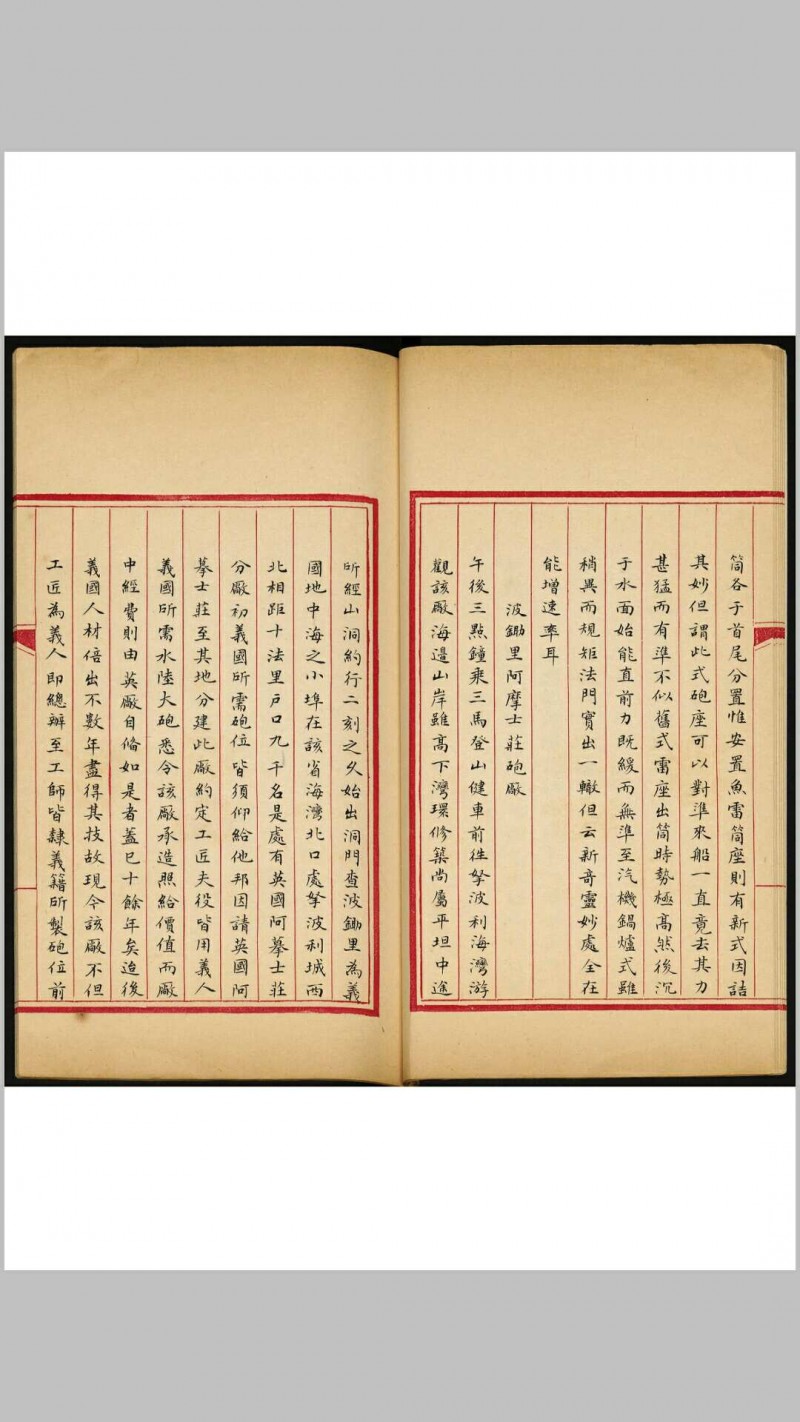 筒各于首尾分置惟安置魚雷筒座則有新式因詰
其妙但謂此式砲座可以對準來船一直竟去其力
甚猛而有準不似舊式雷座出筒時勢極高然後沉
于水面始能直前力既緩而無準至汽機鍋爐式雖
稍異而規矩法門實出一轍但云新奇靈妙處全在
能增速率耳
波鋤里阿摩士莊砲廠
午後三點鐘乘三馬登山健車前徃拏波利海灣游
觀該廠海邉山岸雖高下灣環修築尚屬平坦中途
所經山洞約行二刻之久始出洞門查波鋤里為義
國地中海之小埠在該省海灣北口處拏波利城西
北相距十法里户口九千名是處有英國阿摹士莊
分廠初義國所需砲位皆須仰給他邦因請英國阿
摹士莊至其地分建此廠約定工匠夫役皆用義人
義國所需水陸大砲悉令該廠承造照給價值而廠
中經費則由英廠自俻如是者蓋已十餘年矣迨後
義國人材倍出不數年盡得其技故現令該廠不但
工匠為義人即總辦至工師皆隸義籍所製砲位前